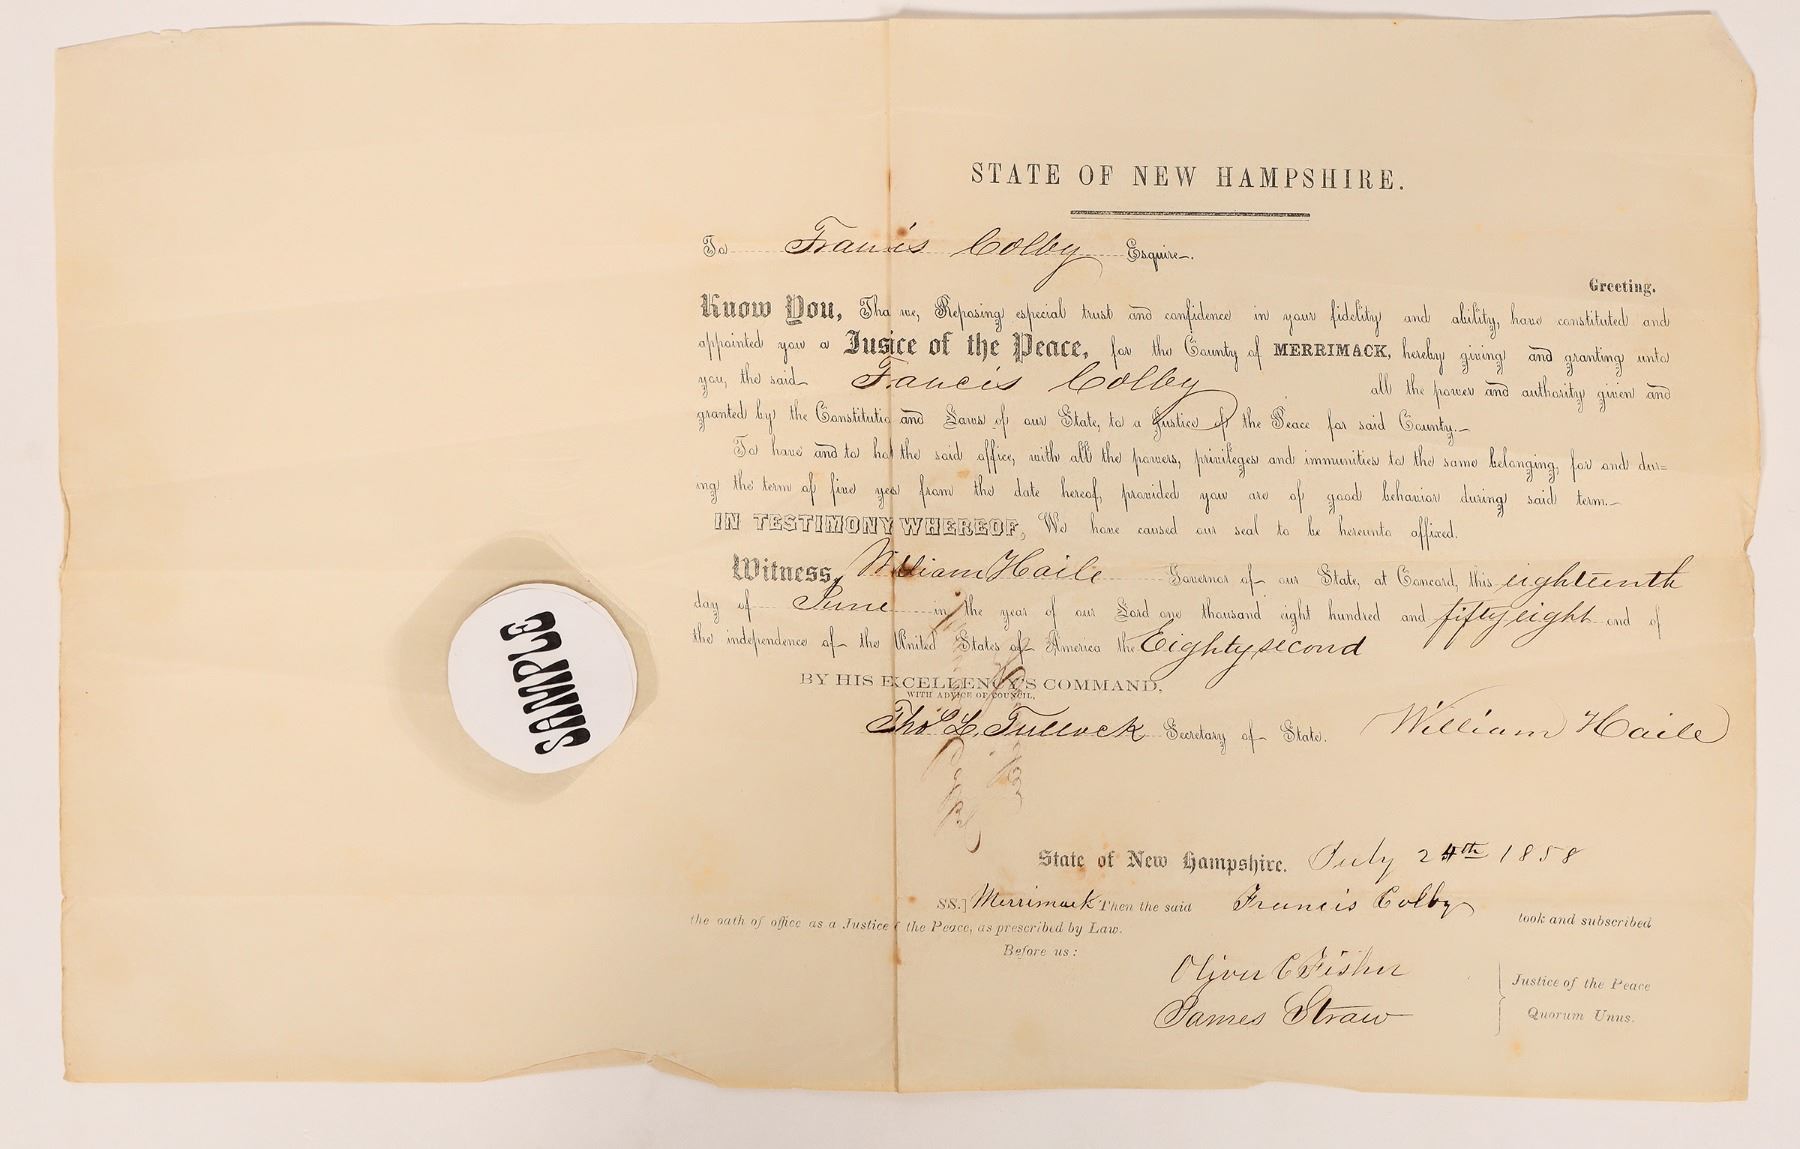 STATE OF NEW HAMPSHIRE.
To Francis Colby Esquire.
Greeting.
Know You, Tha we, Reposing especial trust and confidence in your fidelity and ability, have constituted and
appointed you a Jusice of the Peace, for the County of MERRIMACK, hereby giving and granting unto
you, the said Francis Colby all the power and authority given and
granted by the Constitutio and Laws of our State, to a Justice of the Peace for said County.
To have and to ho the said office, with all the powers, privileges and immunities to the same belonging, for and dur-
ing the term of five yea from the date hereof, provided you are of good behavior during said term.
IN TESTIMONY WHEREOF, We have caused our seal to be hereunto affixed.
Witness, William Haile Governor of our State, at Concord, this eighteenth
day of June in the year of our Lord one thousand eight hundred and fifty eight and of
the independence of the United States of America the Eighty second
BY HIS EXCELLENCY'S COMMAND,
WITH ADVICE OF COUNCIL,
Tho. L. Tullock Secretary of State. William Haile
SAMPLE
State of New Hampshire. July 24th 1858
SS.] Merrimack Then the said Francis Colby took and subscribed
the oath of office as a Justice f the Peace, as prescribed by Law.
Before us:
Oliver C Fisher
James Straw
Justice of the Peace
Quorum Unus.